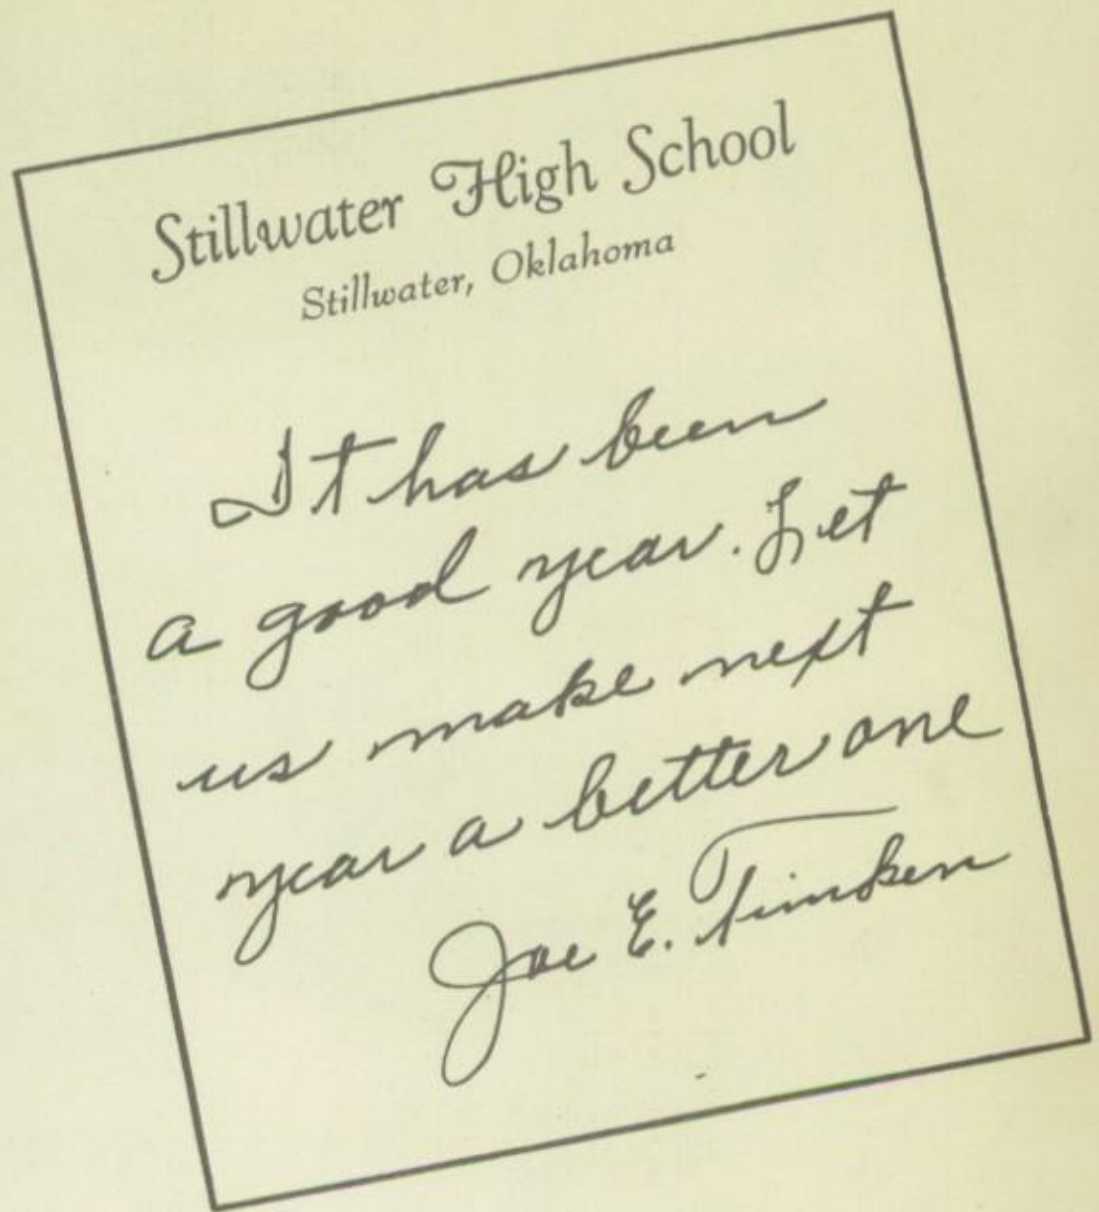 Stillwater High School
Stillwater, Oklahoma
It has been
a good year. Let
us make next
year a better one
Joe E. Timken